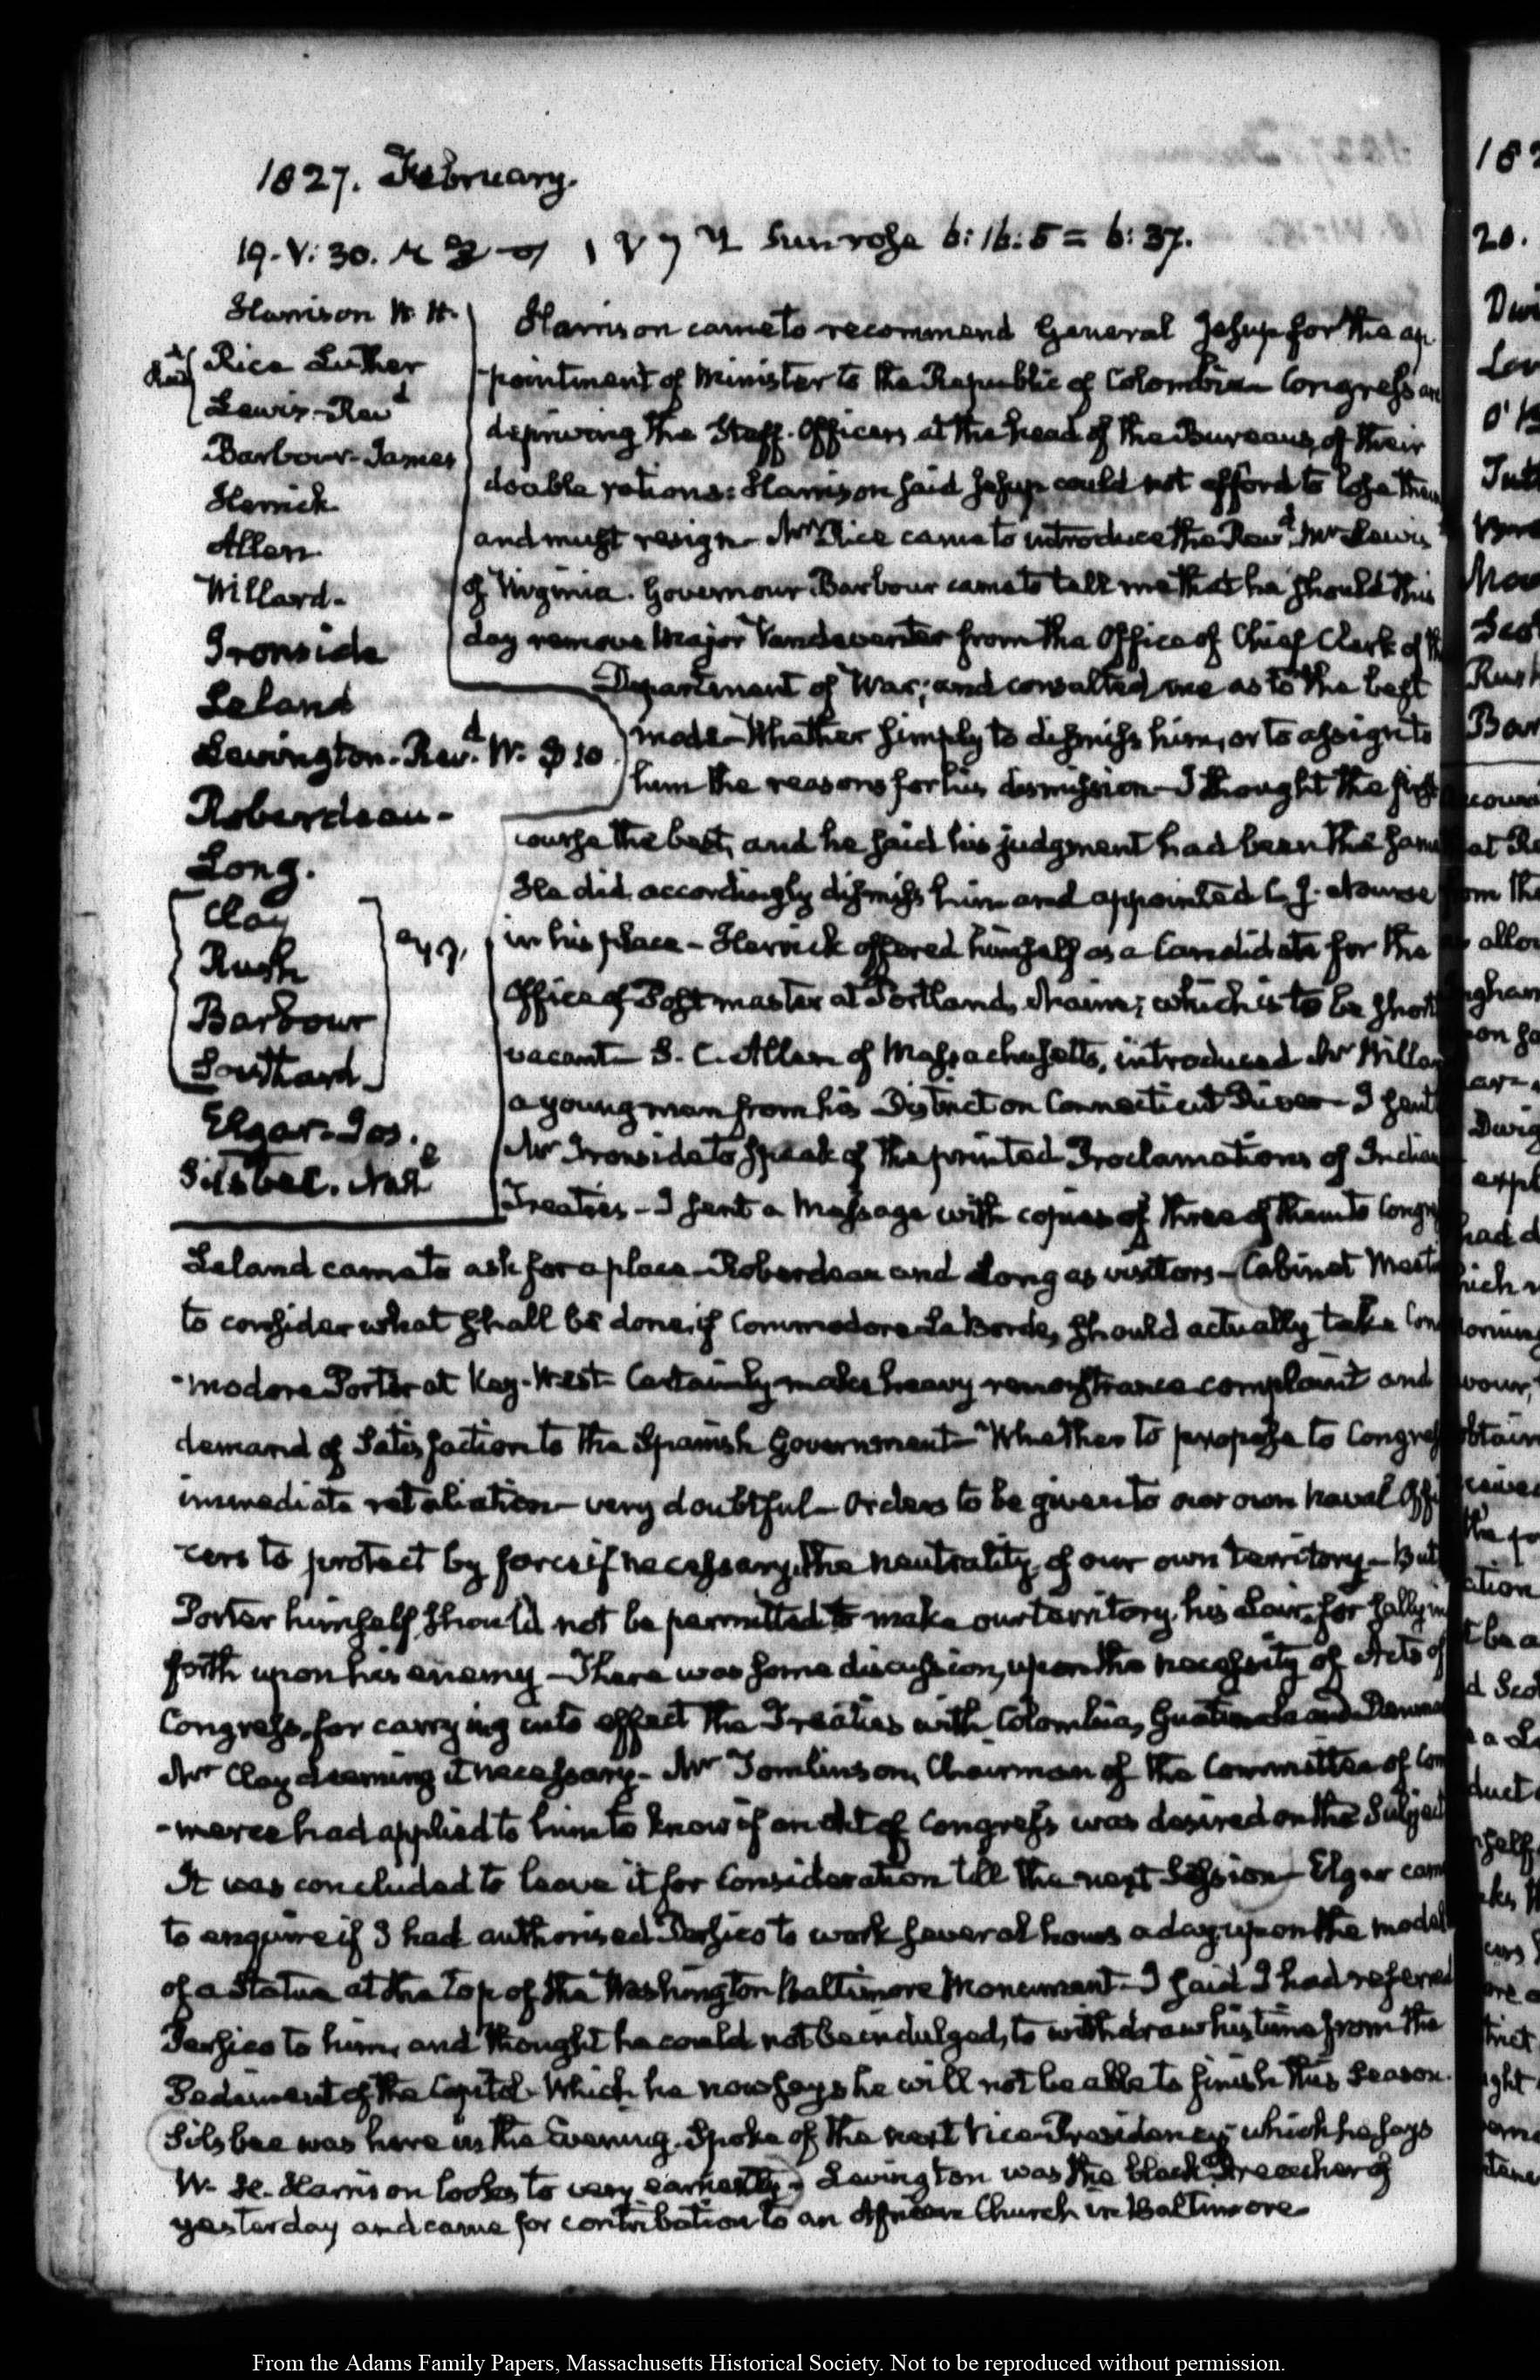 1827. February.
19. V: 30. Sun rose 6: 16: 5 = 6: 37.
Harrison W. H.
Rice Luther
Lewis - Revd
Barbour - James
Herrick
Allen
Willard -
Ironside
Leland
Levington - Revd. W. $10
Roberdeau -
Long.
Clay
Rush
Barbour
Southard
Elgar - Jos.
Silsbee. Nathl
Harrison came to recommend General Jesup for the ap
pointment of Minister to the Republic of Colombia - Congress are
depriving the Staff-Officers at the head of the Bureaus, of their
double rations: Harrison said Jesup could not afford to lose them
and must resign - Mr Rice came to introduce the Revd. Mr Lewis
of Virginia. Governour Barbour came to tell me that he should this
day remove Major Vandeventer from the Office of Chief Clerk of th
Department of War; and consulted me as to the best
mode - Whether simply to dismiss him, or to assign to
him the reasons for his dismission - I thought the first
course the best, and he said his judgment had been the same
He did accordingly dismiss him and appointed C. J. Nourse
in his place - Herrick offered himself as a Candidate for the
Office of Postmaster at Portland, Maine; which is to be short
vacant - S. C. Allen of Massachusetts, introduced Mr Willar
a young man from his District on Connecticut River - I sent
Mr Ironside to speak of the printed Proclamations of Indian
Treaties - I sent a Message with copies of three of them to Congre
Leland came to ask for a place - Roberdeau and Long as visitors - Cabinet Meet
to consider what shall be done, if Commodore LaBorde, should actually take Com
-modore Porter at Key-West - Certainly make heavy remonstrance complaint and
demand of Satisfaction to the Spanish Government - Whether to propose to Congress
immediate retaliation - very doubtful - Orders to be given to our own naval Offi
-cers to protect by force if necessary, the neutrality of our own territory - But
Porter himself should not be permitted to make our territory, his Lair, for sallying
forth upon his enemy - There was some discussion, upon the necessity of Acts of
Congress, for carrying into effect the Treaties with Colombia, Guatemala and Denma
Mr Clay deeming it necessary - Mr Tomlinson, Chairman of the Committee of Com
-merce had applied to him to know if an Act of Congress was desired on the Subject
It was concluded to leave it for Consideration till the next Session - Elgar came
to enquire if I had authorised Persico to work several hours a day, upon the model
of a Statue at the top of the Washington Baltimore Monument - I said I had referred
Persico to him, and thought he could not be indulged, to withdraw his time from the
Pediment of the Capitol - Which he now says he will not be able to finish this Season.
Silsbee was here in the Evening. Spoke of the next Vice-Presidency which he says
W. H. Harrison looks to very earnestly - Levington was the black Preacher of
yesterday and came for contribution to an African Church in Baltimore
From the Adams Family Papers, Massachusetts Historical Society. Not to be reproduced without permission.